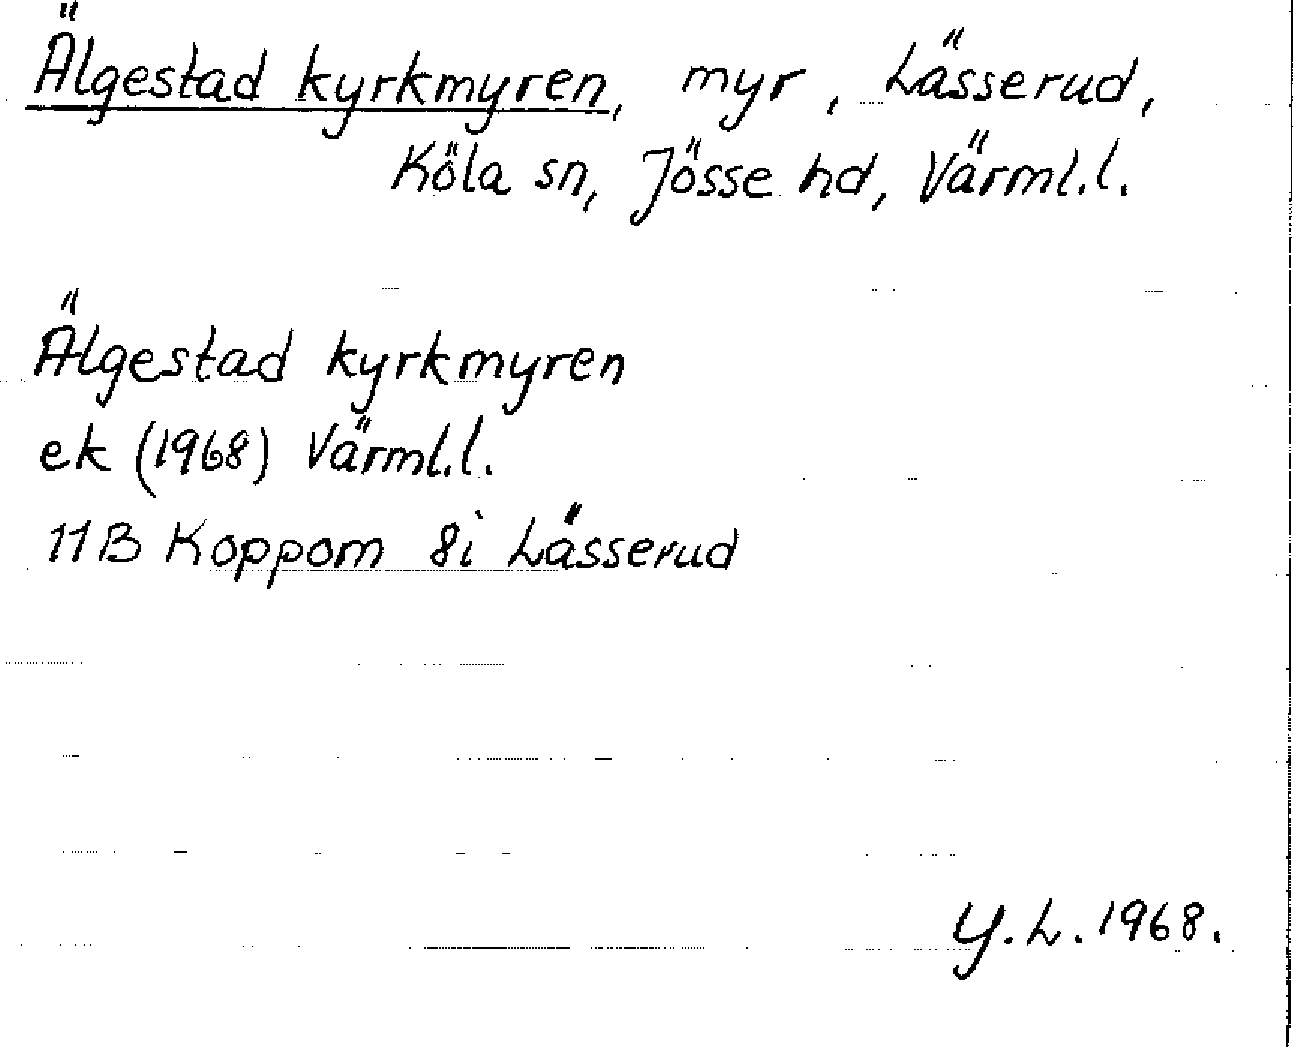 Älgestad kyrkmyren, myr, Lässerud,
Köla sn, Jösse hd, Värml.l.
Älgestad kyrkmyren
ek (1968) Värml.l.
11B Koppom 8i Lässerud
Y.L. 1968.